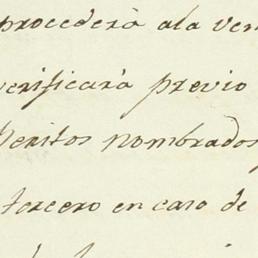 procederà ala ven
verificarà previo
Peritos nombrados
tercero en caso de